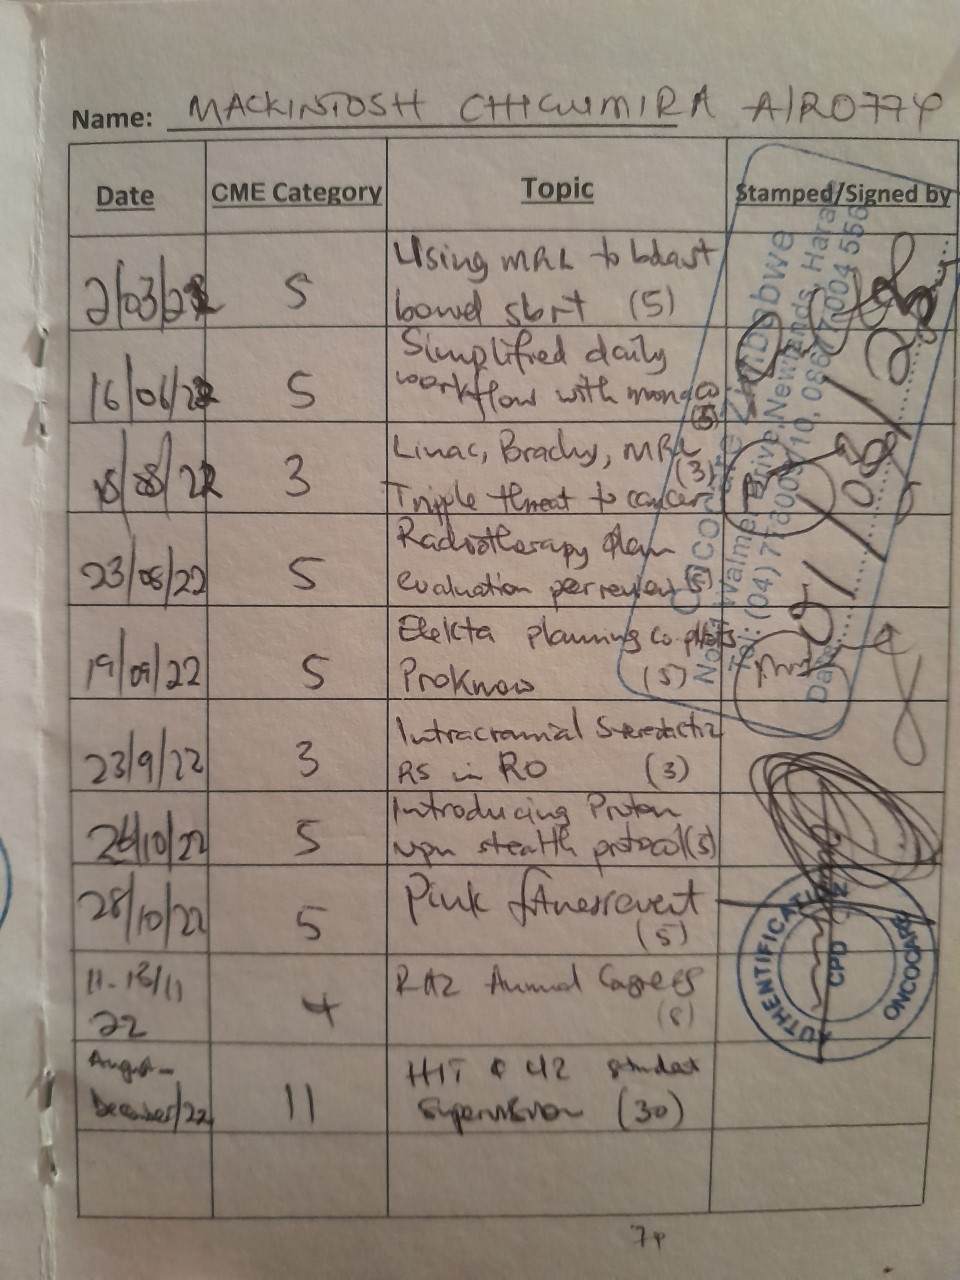 Name: MACKINTOSH CHIGUMIRA A/RO774
Date CME Category Topic Stamped/Signed by
2/03/22 5 Using MRL to
bowel (5)
16/06/22 5 Simplified daily
workflow with monaco
(5)
18/08/22 3 Linac, Brachy, MRL
(3)
Triple threat to cancer
23/08/22 5 Radiotherapy plan
evaluation peer review (5)
19/09/22 5 Elekta planning
ProKnow (5)
23/9/22 3 Intracranial
RS in RO (3)
26/10/22 5 Introducing Proton
stealth protocol (5)
28/10/22 5 Pink
(5)
11-13/11
22 4 RAZ Annual Congress
(8)
August-
December/22 11 HIT & UZ student
supervision (30)
Oncocare Zimbabwe
Walmer Drive, Newlands, Harare
Tel: (04)
Date 01/08/23
AUTHENTIFICATION
CPD
ONCOCARE